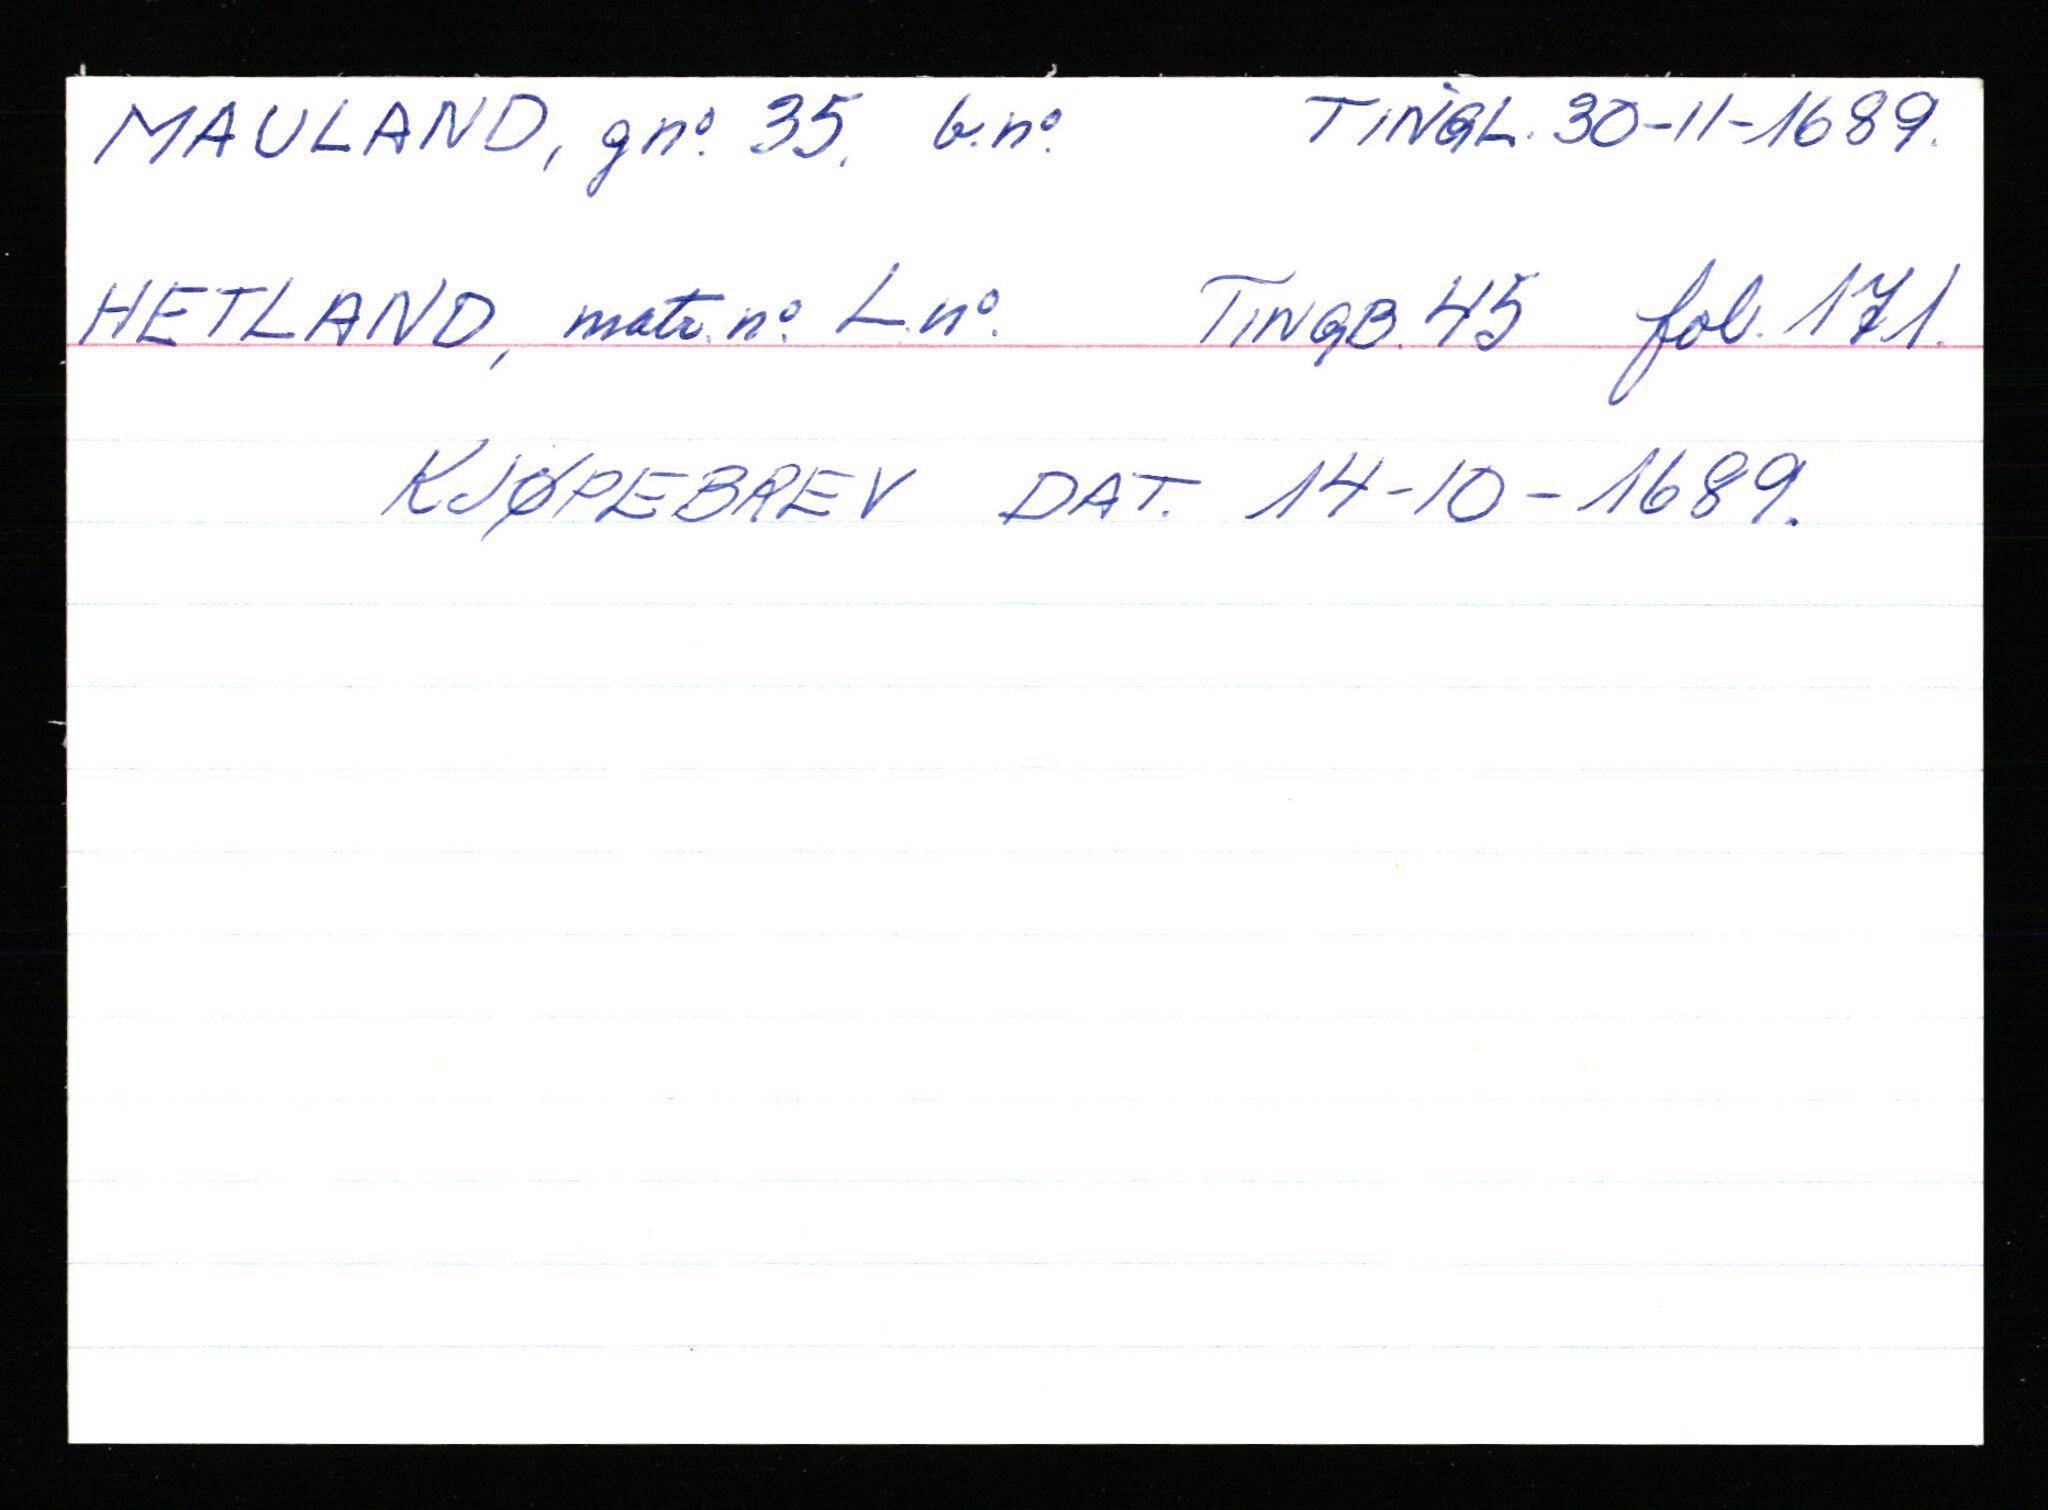 MAULAND, gnº. 35. b.nº. TINGL. 30-11-1689.
HETLAND, matr.nº. L.nº. TINGB. 45 fol. 171.
KJØPEBREV DAT. 14-10-1689.